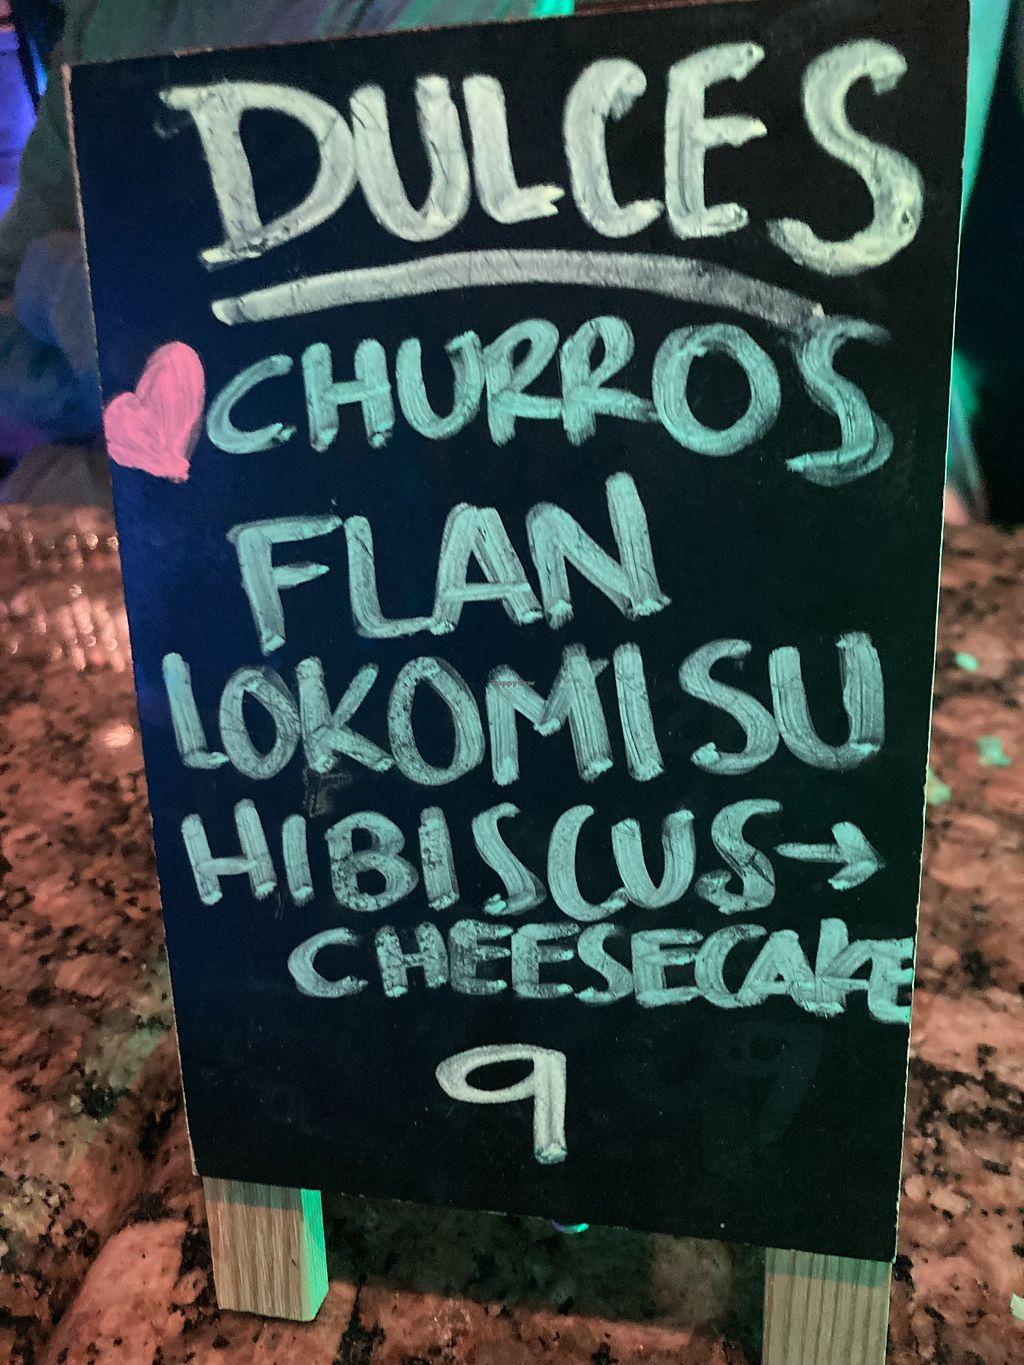 DULCES
CHURROS
FLAN
LOKOMISU
HIBISCUS→
CHEESECAKE
9